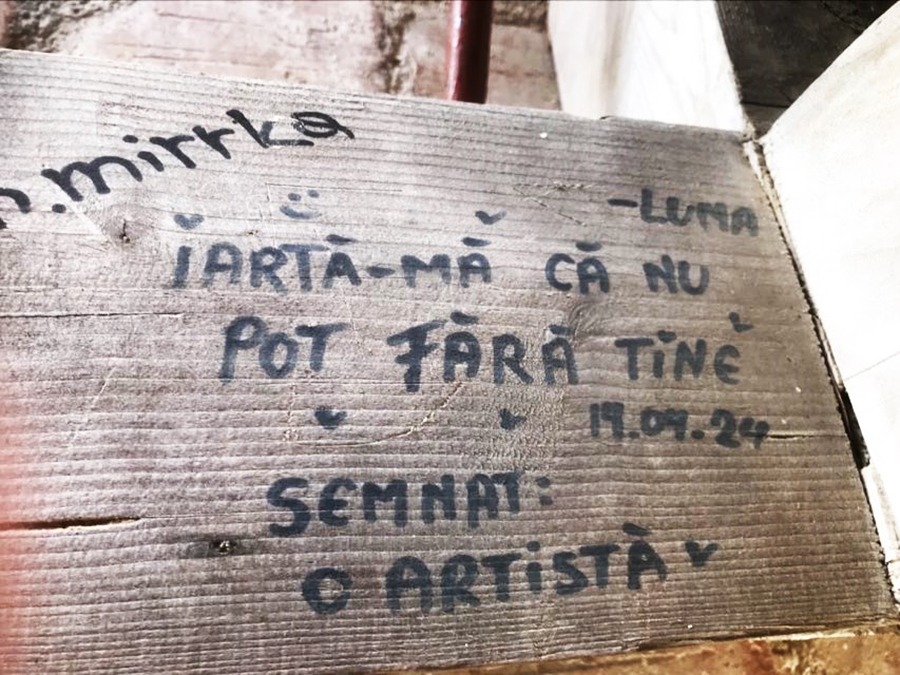 .mirrka
-LUMA
IARTĂ-MĂ CĂ NU
POT FĂRĂ TINE
SEMNAT:
O ARTISTĂ